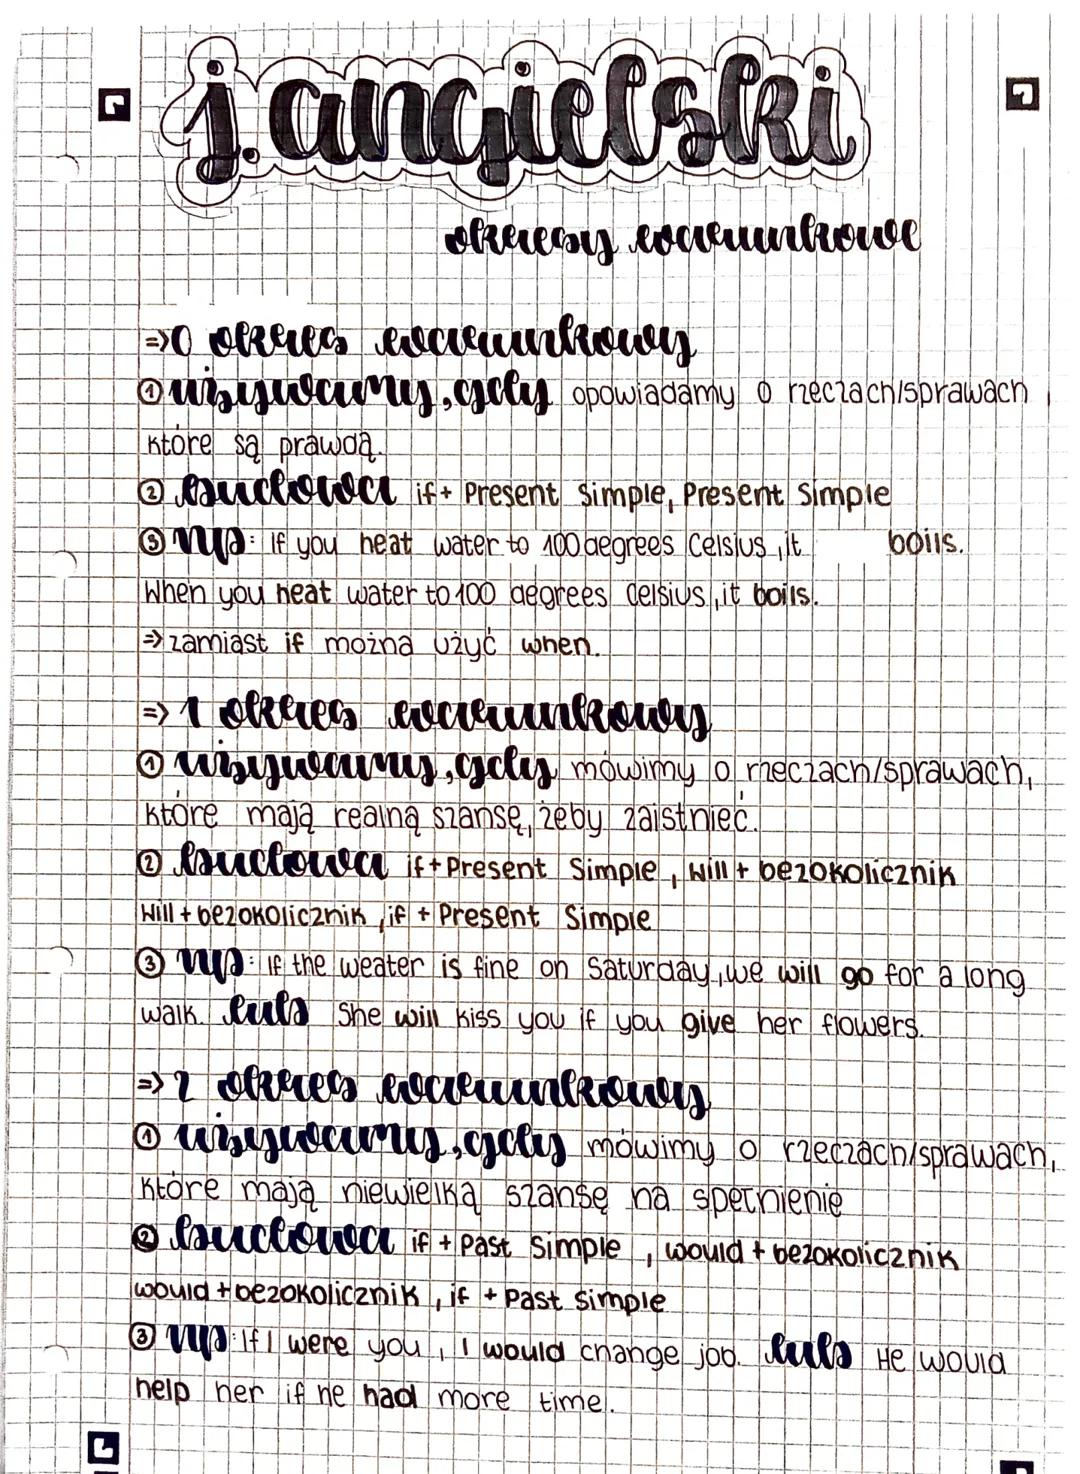 j. angielski
okresy warunkowe
=> 0 okres warunkowy
① używamy, gdy opowiadamy o rzeczach/sprawach,
które są prawdą.
② budowa if + Present Simple, Present Simple
③ np: If you heat water to 100 degrees Celsius, it boils.
When you heat water to 100 degrees Celsius, it boils.
=> zamiast if można użyć when.
=> 1 okres warunkowy
① używamy, gdy mówimy o rzeczach/sprawach,
które mają realną szansę, żeby zaistnieć.
② budowa if + Present Simple, will + bezokolicznik
will + bezokolicznik, if + Present Simple
③ np: If the weater is fine on Saturday, we will go for a long
walk. lub She will kiss you if you give her flowers.
=> 2 okres warunkowy
① używamy, gdy mówimy o rzeczach/sprawach,
które mają niewielką szansę na spełnienie
② budowa if + Past Simple, would + bezokolicznik
would + bezokolicznik, if + Past Simple
③ np: If I were you, I would change job. lub He would
help her if he had more time.